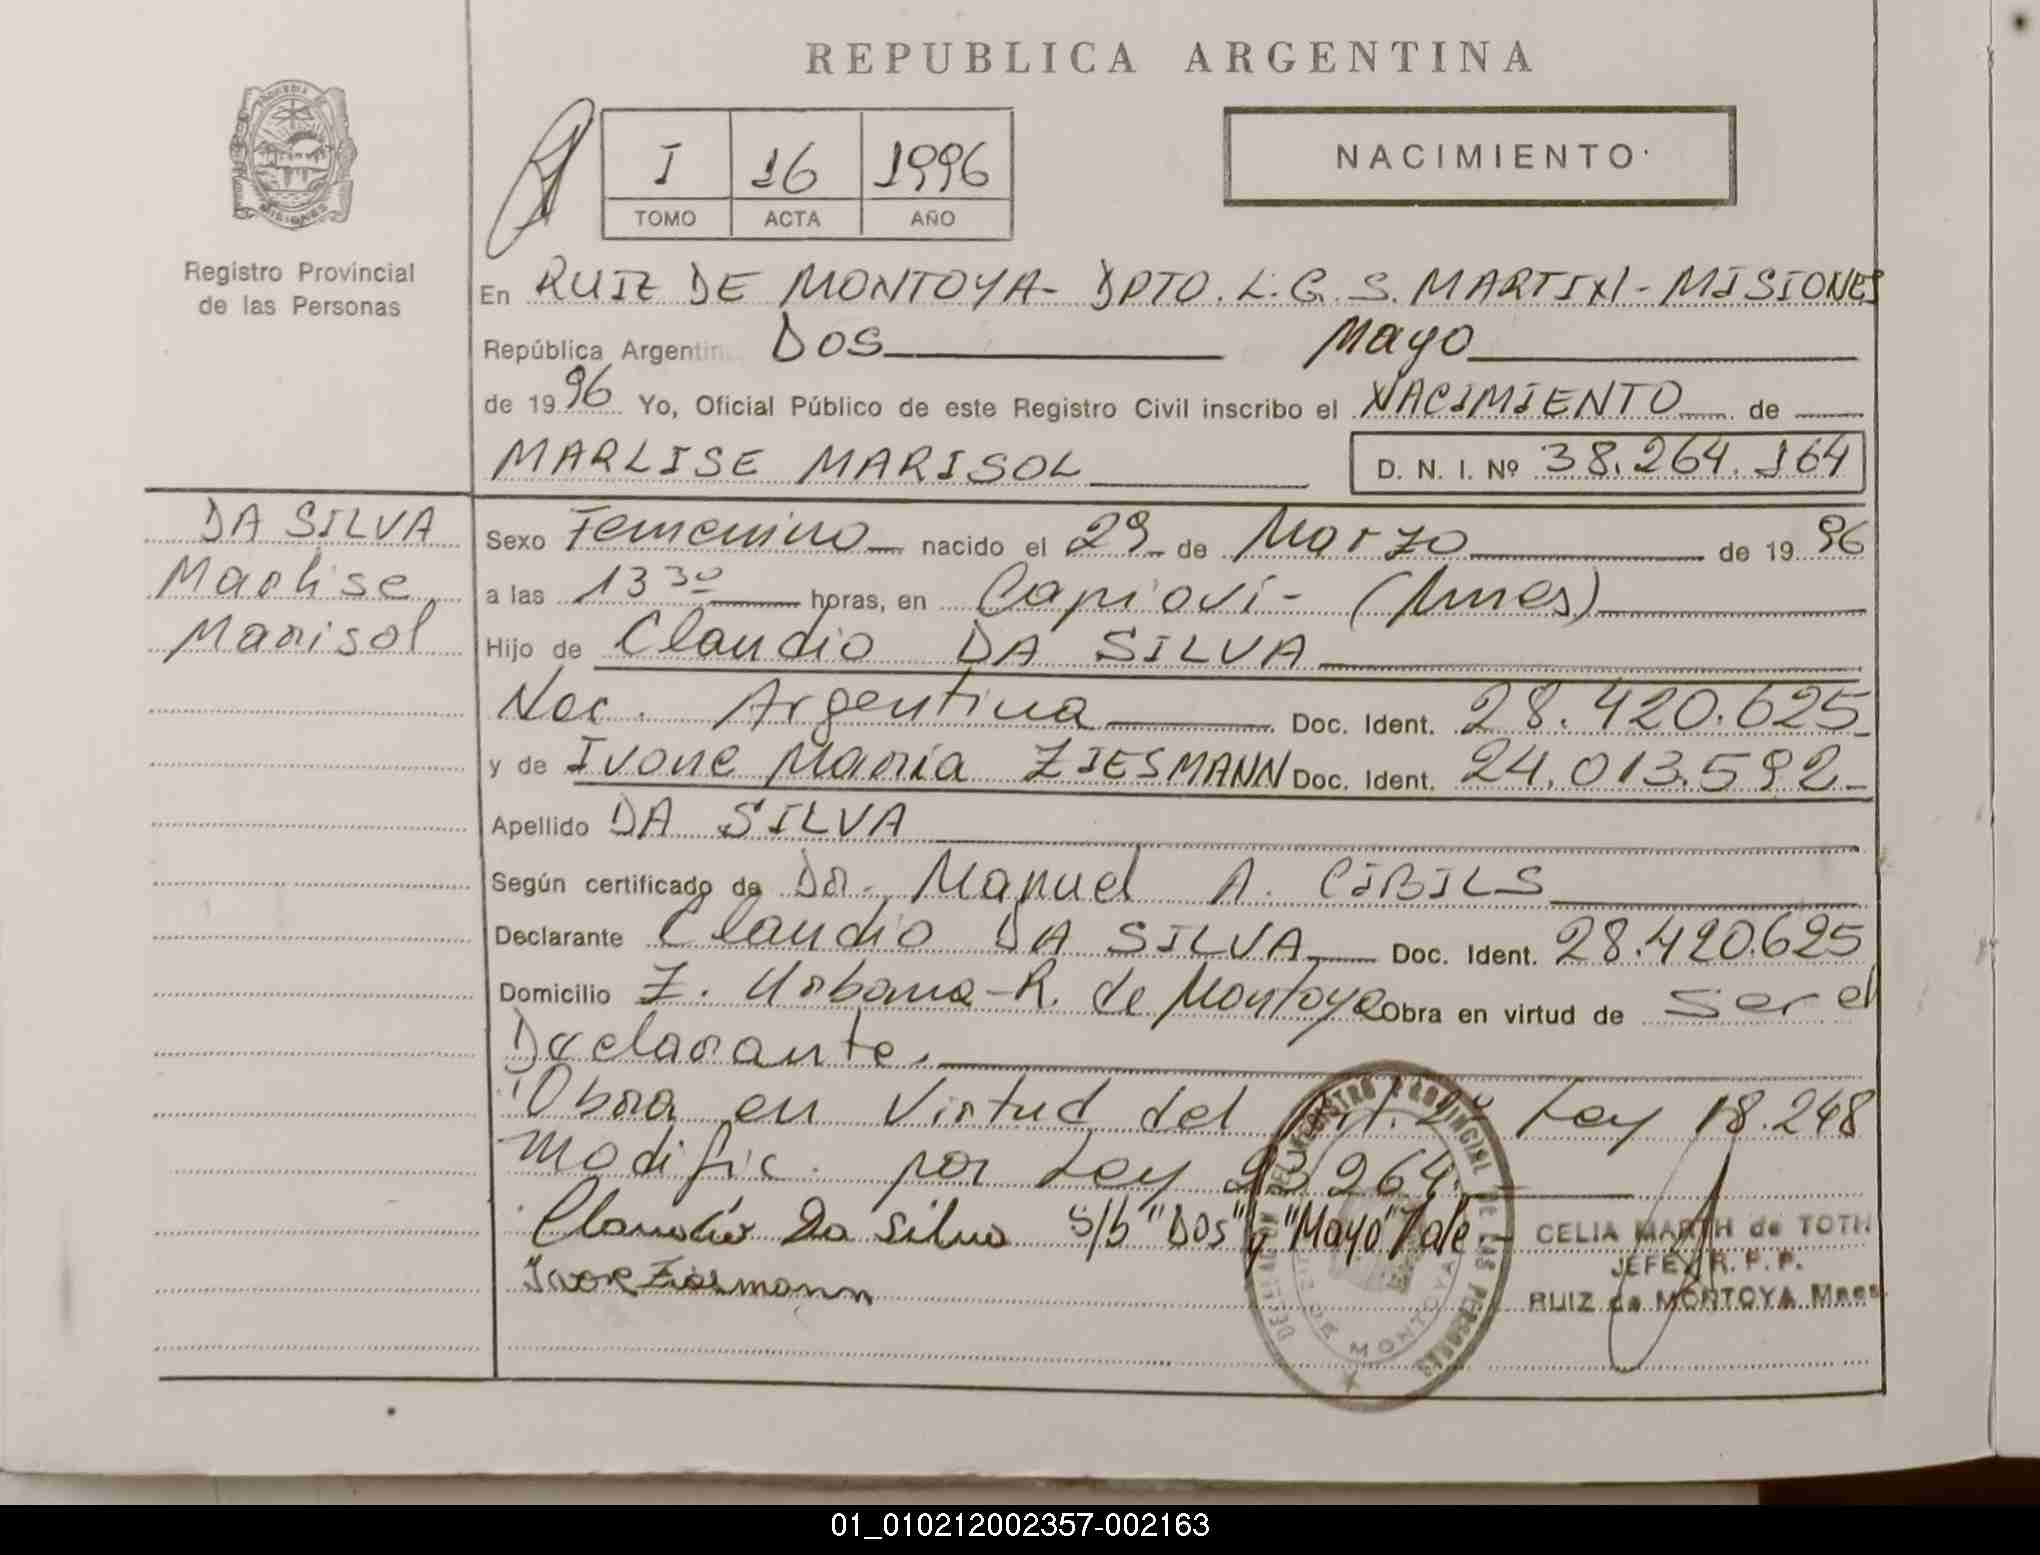 REPUBLICA ARGENTINA
I 16 1996
TOMO ACTA AÑO
NACIMIENTO
MISIONES
Registro Provincial
de las Personas
En RUIZ DE MONTOYA - DPTO. L. G. S. MARTIN - MISIONES
República Argentin DOS Mayo
de 1996 Yo, Oficial Público de este Registro Civil inscribo el NACIMIENTO de
MARLISE MARISOL D. N. I. Nº 38.264.164
DA SILVA
Marlise
Marisol
Sexo Femenino nacido el 29 de Marzo de 1996
a las 13 30 horas, en Capioví - (Mnes)
Hijo de Claudio DA SILVA
Nac. Argentina Doc. Ident. 28.420.625
y de Ivone Maria ZIESMANN Doc. Ident. 24.013.592
Apellido DA SILVA
Según certificado de Dr. Manuel A. CIBILS
Declarante Claudio DA SILVA Doc. Ident. 28.420.625
Domicilio Z. Urbana - R. de Montoya Obra en virtud de ser el
Declarante.
Obra en Virtud del Art. 2º Ley 18.248
Modific. por Ley 23.264.
Claudio Da Silva S/b "Dos" y "Mayo" Vale
Ivone Ziesmann
DELEGACION DEL REGISTRO PROVINCIAL DE LAS PERSONAS
DE MONTOYA
CELIA MARTH de TOTH
JEFE R. P. P.
RUIZ de MONTOYA Mnes
01_010212002357-002163